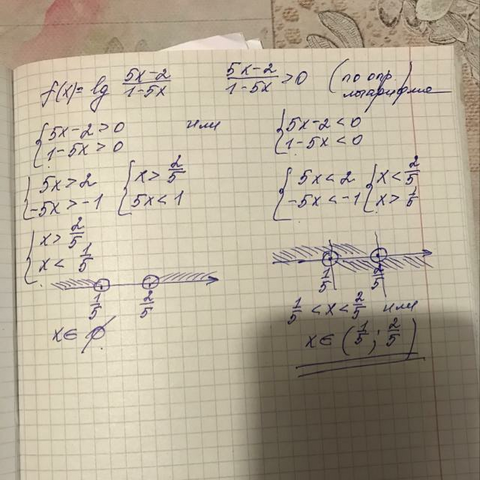 f(x)= lg (5x-2)/(1-5x)    (5x-2)/(1-5x) > 0 (по опр. логарифма)
{ 5x-2>0
1-5x>0
или
{ 5x-2<0
1-5x<0
{ 5x>2
-5x>-1
{ x> 2/5
5x<1
{ x> 2/5
x< 1/5
1/5 2/5
x∈ ∅
{ 5x<2
-5x<-1
{ x< 2/5
x> 1/5
1/5 2/5
1/5 <x< 2/5 или
x∈ (1/5; 2/5)